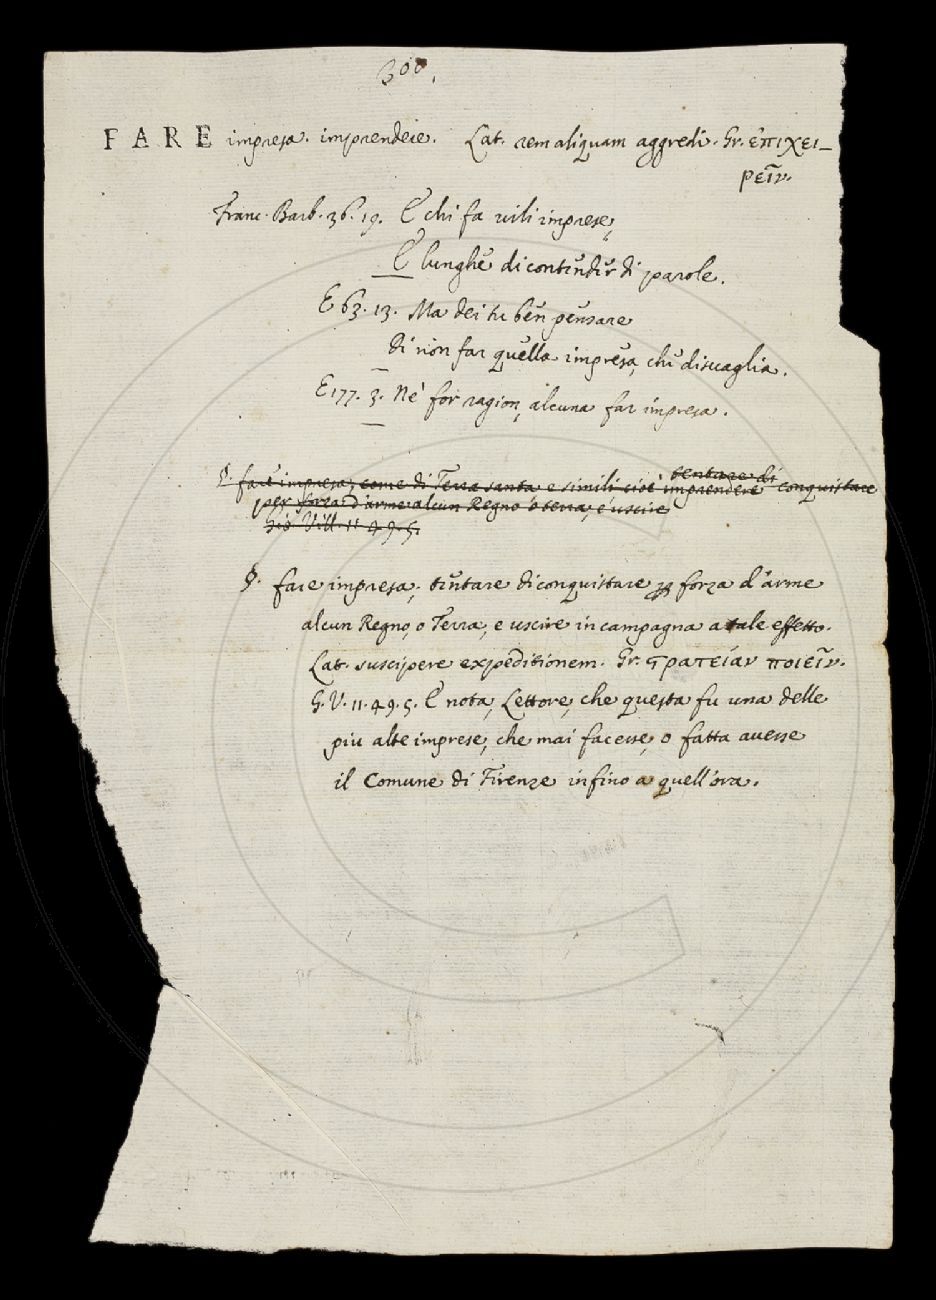 300.
FARE impresa. imprendere. Lat. rem aliquam aggredi. Gr. ἐπιχει-
ρεῖν.
Franc. Barb. 36. 19. E chi fa vili imprese,
E lunghe di contender di parole.
E 63. 13. Ma dei tu ben pensare
Di non far quella impresa, che discaglia.
E 177. 3. Nè for ragion, alcuna far impresa.
tentare di
§. fare impresa, come di Terra santa e simili cioè imprendere conquistare
per forza d'arme alcun Regno o terra, e uscire
Gio. Vill. 11. 49. 5.
§. fare impresa, tentare di conquistare p forza d'arme
alcun Regno, o Terra, e uscire in campagna a tale effetto.
Lat. suscipere expeditionem. Gr. ϛρατείαν ποιεῖν.
G. V. 11. 49. 5. E nota, Lettore, che questa fu una delle
piu alte imprese, che mai facesse, o fatta avesse
il Comune di Firenze infino a quell'ora.